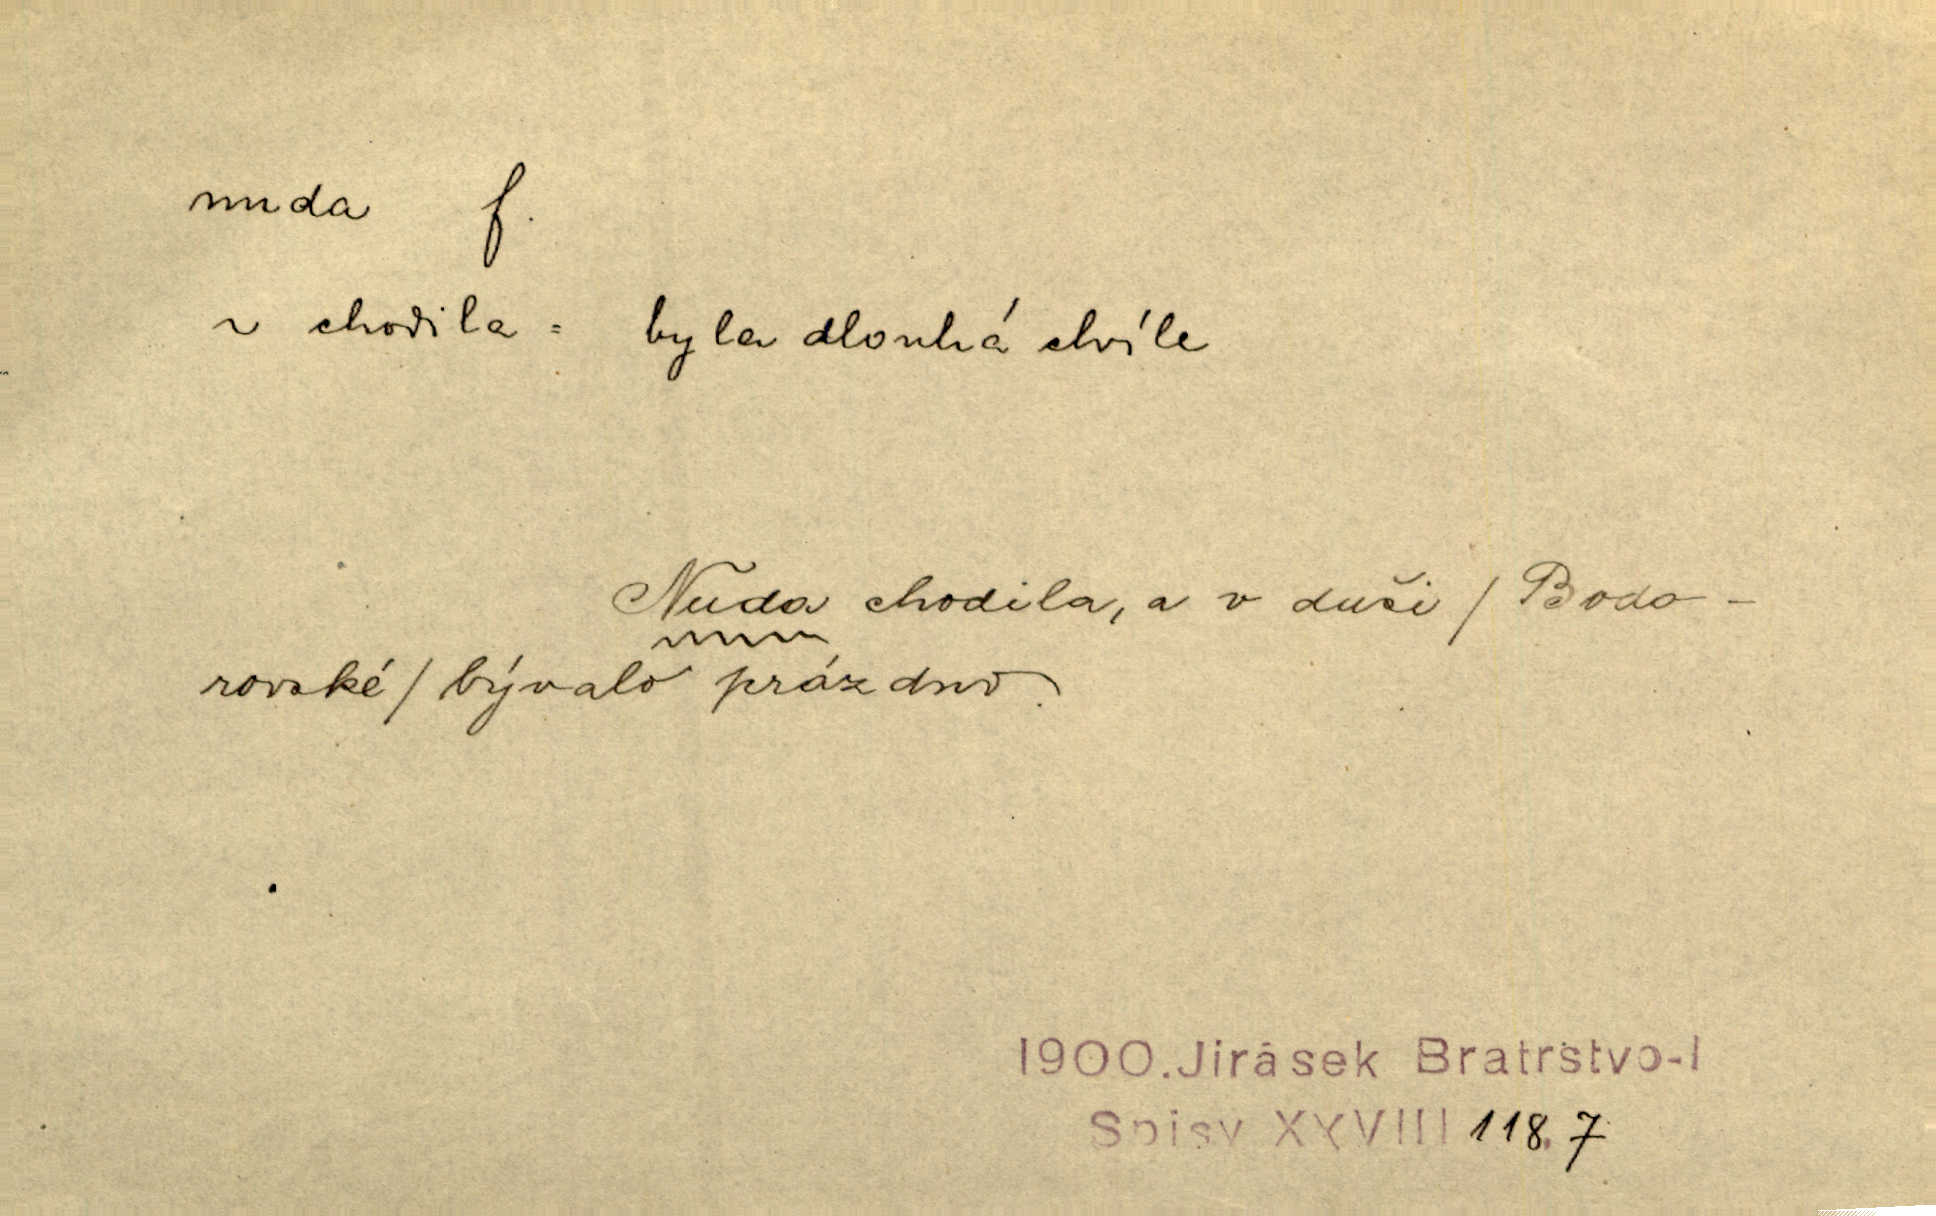 nuda f.
~ chodila = byla dlouhá chvíle
Nuda chodila, a v duši / Bodo-
rovské / bývalo prázdno.
1900. Jirásek Bratrstvo-I
Spisy XXVIII 118.7